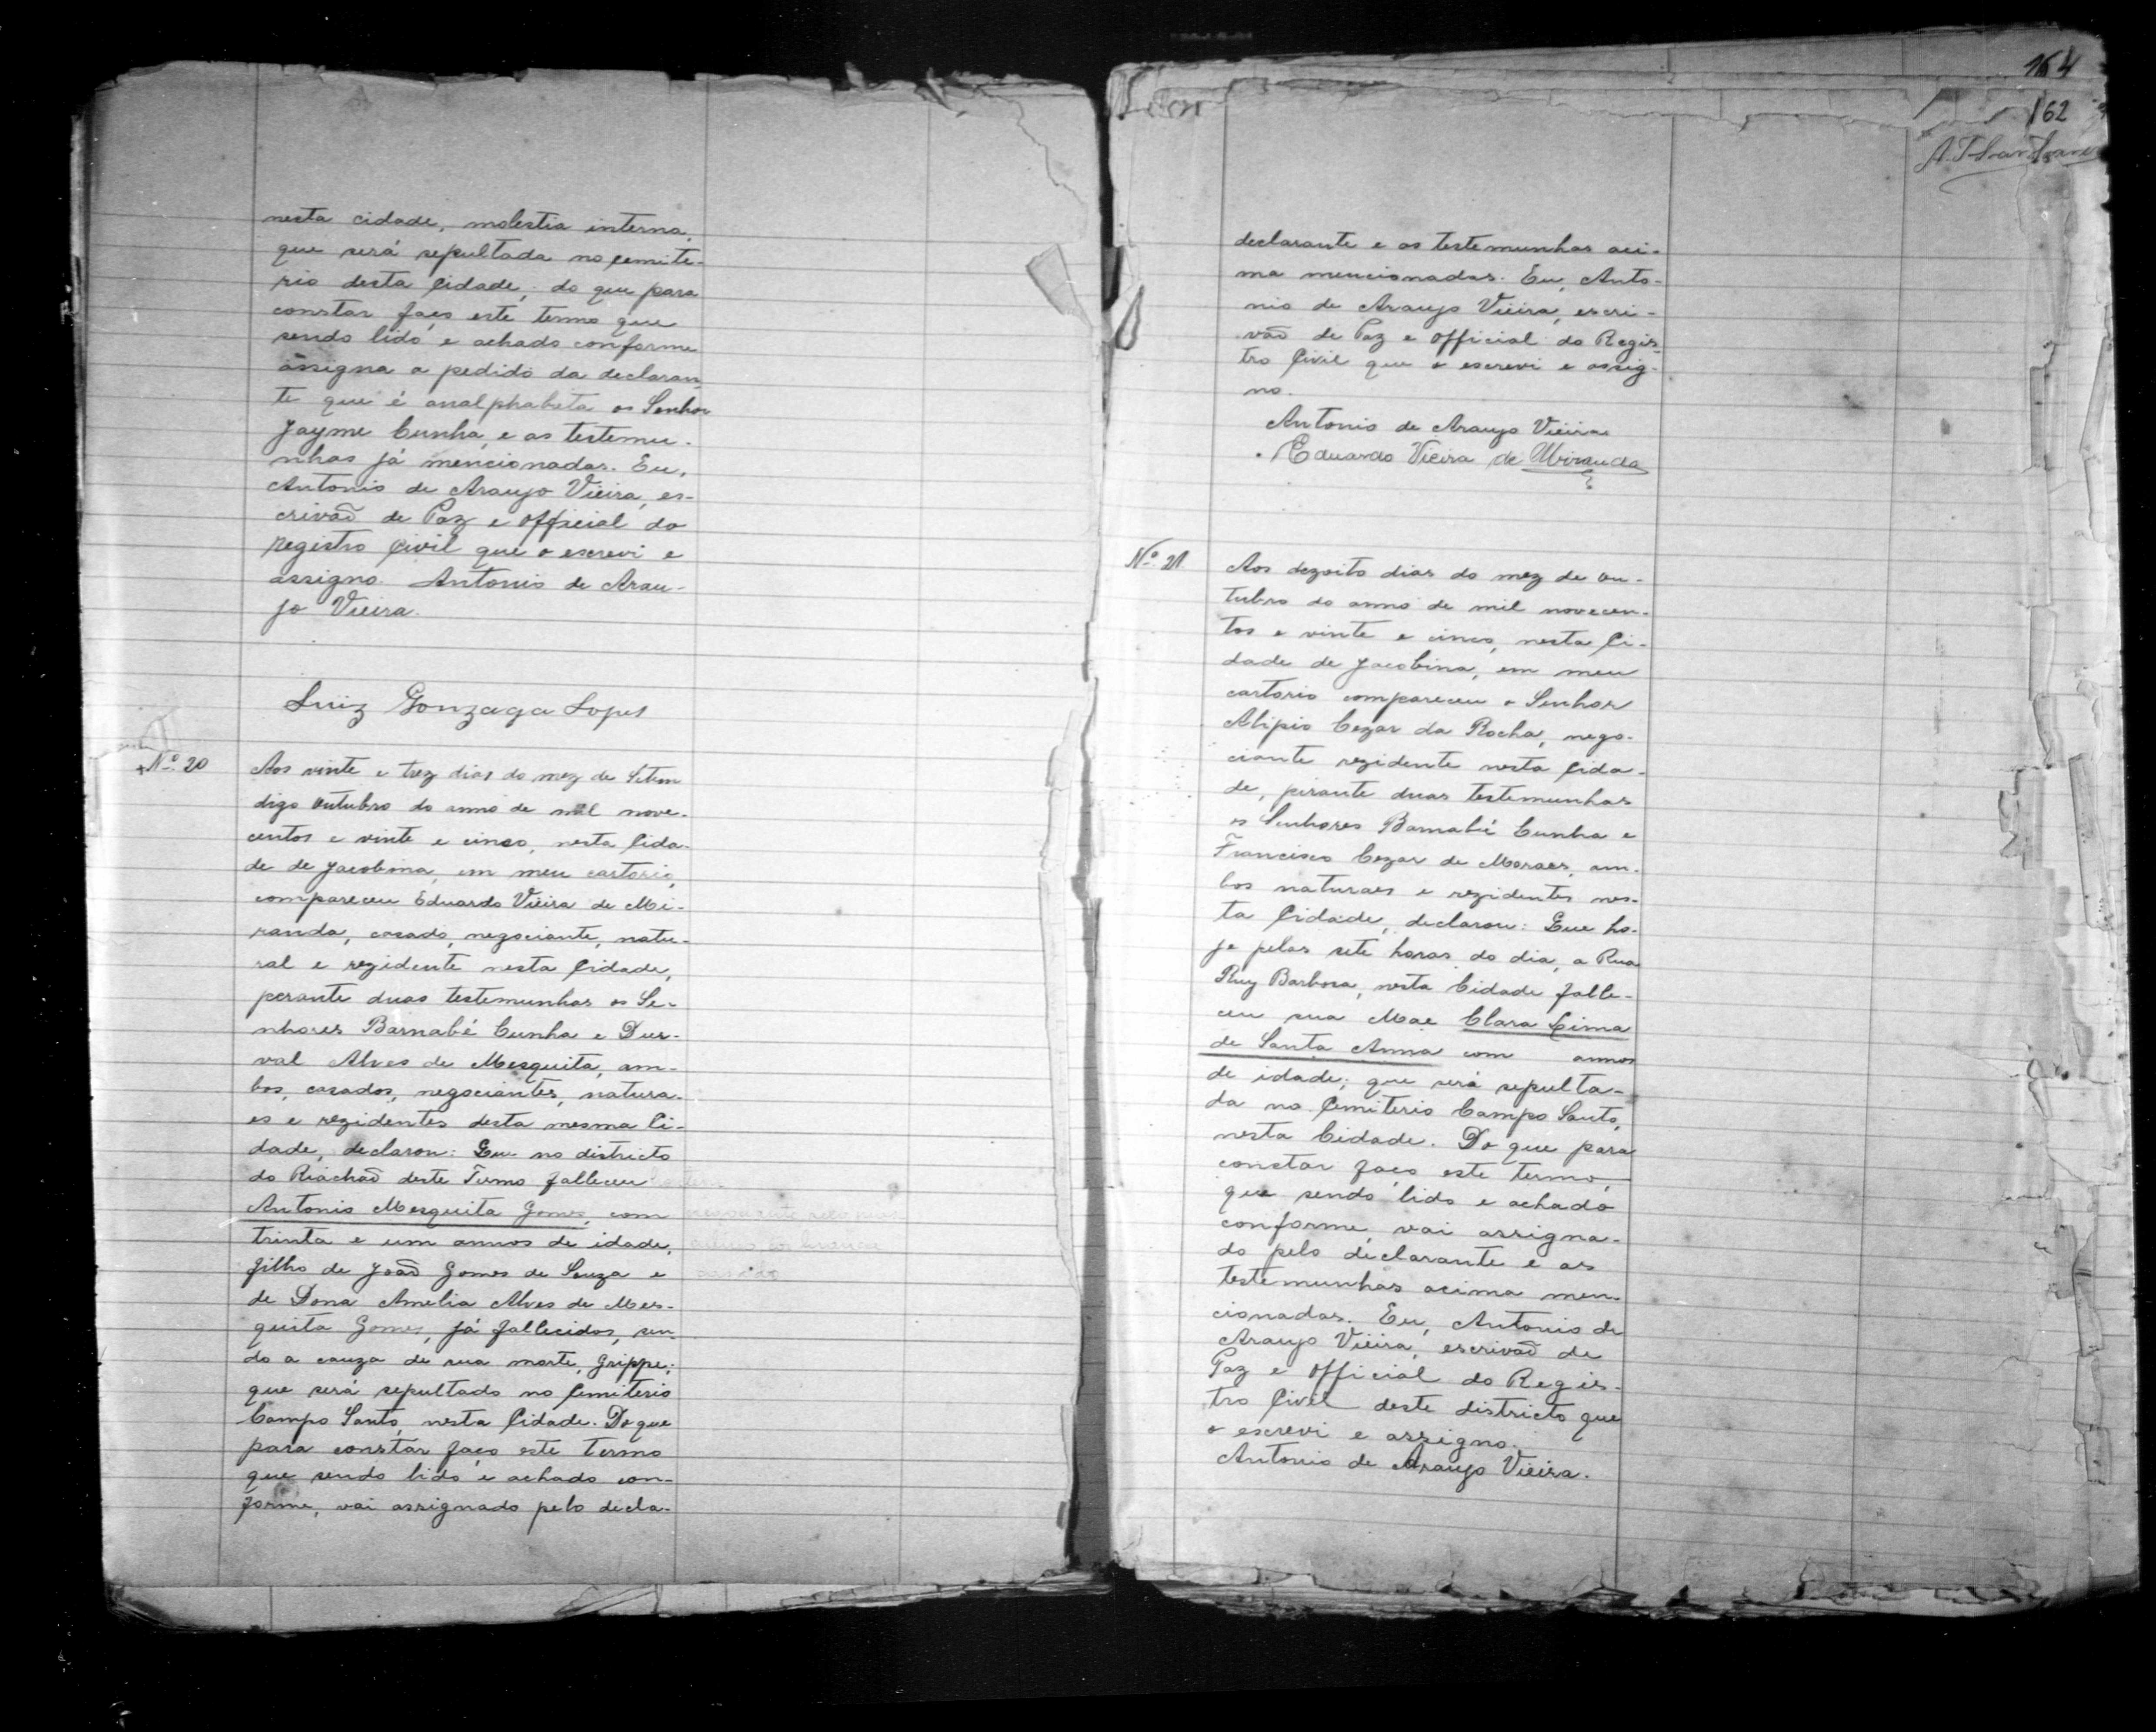 nesta cidade, molestia interna,
que será sepultada no cemite-
rio desta Cidade; do que para
constar faço este termo que
sendo lido e achado conforme
assigna a pedido da declaran-
te que é analphabeta os Senhor
Jayme Cunha, e as testemu-
nhas já mencionadas. Eu,
Antonio de Araujo Vieira, es-
crivaõ de Paz e official do
Registro Civil que o escrevi e
assigno. Antonio de Arau-
jo Vieira.
Luiz Gonzaga Lopes
Nº 20
Aos vinte e trez dias do mez de Setem
digo Outubro do anno de mil nove-
centos e vinte e cinco, nesta Cida-
de de Jacobina, em meu cartorio,
compareceu Eduardo Vieira de Mi-
randa, casado, negociante, natu-
ral e rezidente nesta Cidade,
perante duas testemunhas os Se-
nhores Barnabé Cunha e Dur-
val Alves de Mesquita, am-
bos, casados, negociantes, natura-
es e rezidentes desta mesma Ci-
dade, declarou: Que no districto
do Riachaõ deste Termo falleceu
Antonio Mesquita Gomes, com
trinta e um annos de idade,
filho de Joaõ Gomes de Souza e
de Dona Amelia Alves de Mes-
quita Gomes, já fallecidos, sen-
do a cauza de sua morte, Grippe;
que será sepultado no Cemiterio
Campo Santo, nesta Cidade. Do que
para constar faço este termo
que sendo lido e achado con-
forme, vai assignado pelo decla-
164
162
declarante e as testemunhas aci-
ma mencionadas. Eu, Anto-
nio de Araujo Vieira, escri-
vaõ de Paz e official do Regis-
tro Civil que o escrevi e assig-
no.
Antonio de Araujo Vieira
Eduardo Vieira de Miranda
Nº 21
Aos dezoito dias do mez de Ou-
tubro do anno de mil novecen-
tos e vinte e cinco, nesta Ci-
dade de Jacobina, em meu
cartorio compareceu o Senhor
Alipio Cezar da Rocha, nego-
ciante rezidente nesta Cida-
de, perante duas testemunhas
os Senhores Barnabé Cunha e
Francisco Cezar de Moraes, am-
bos naturaes e rezidentes nes-
ta Cidade, declarou: Que ho-
je pelas sete horas do dia, a Rua
Ruy Barbosa, nesta Cidade falle-
ceu sua Mae Clara Lima
de Santa Anna com annos
de idade; que será sepulta-
da no Cemiterio Campo Santo,
nesta Cidade. Do que para
constar faço este termo,
que sendo lido e achado
conforme, vai assigna-
do pelo declarante e as
testemunhas acima men-
cionadas. Eu, Antonio de
Araujo Vieira, escrivaõ de
Paz e official do Regis-
tro Civil deste districto que
o escrevi e assigno.
Antonio de Araujo Vieira.